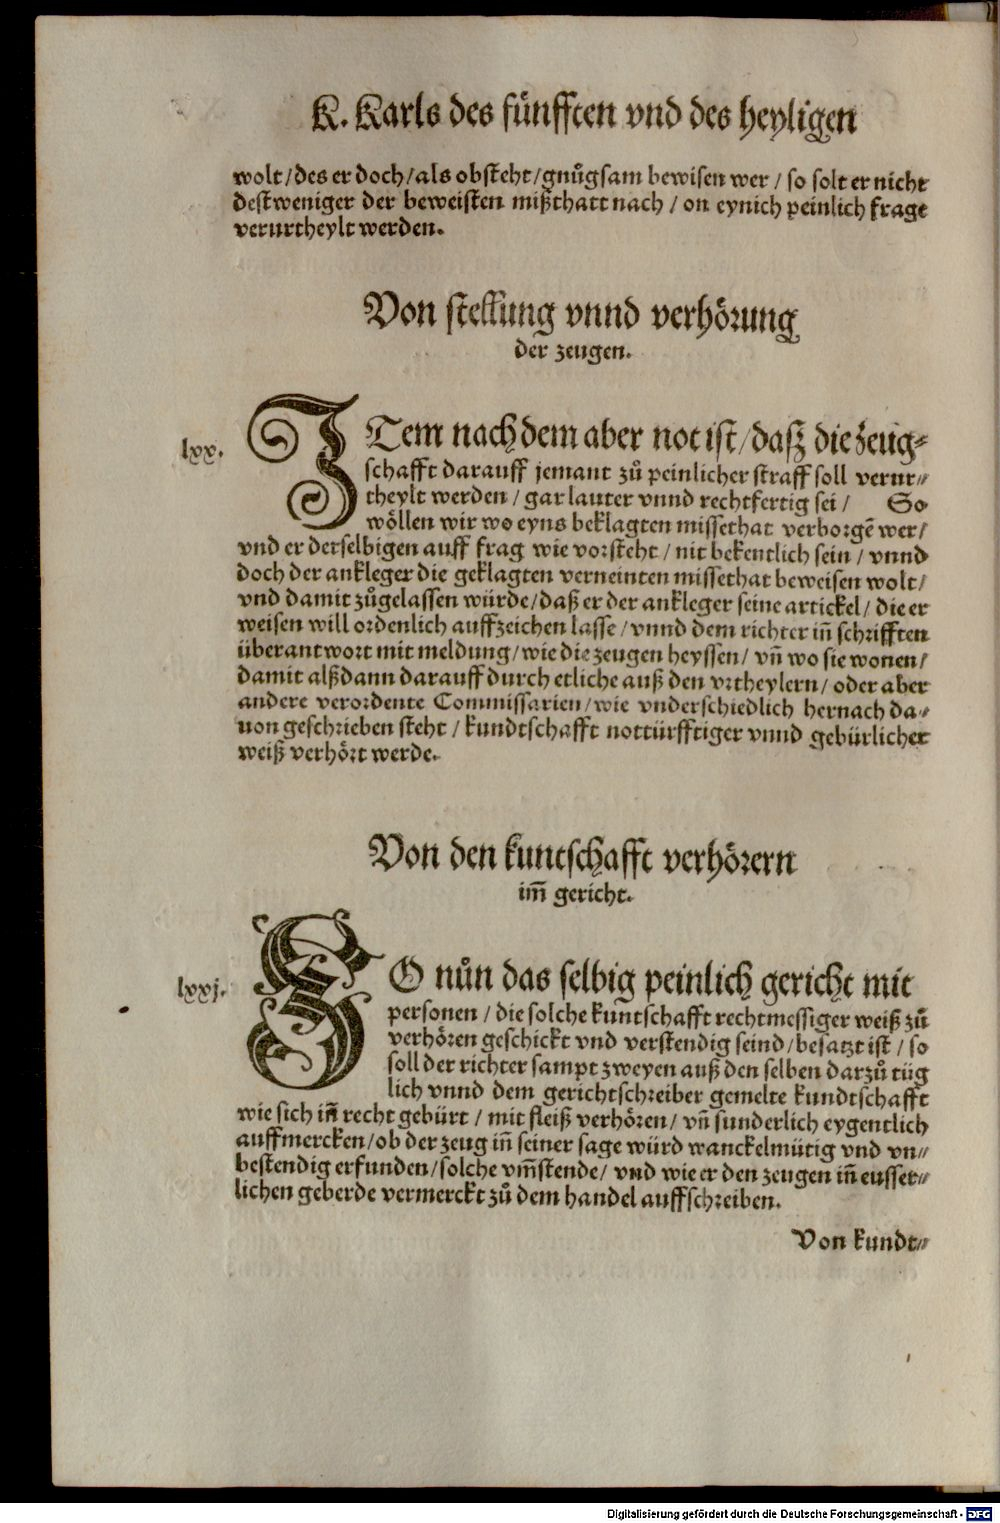 K. Karls des fünfften vnd des heyligen
wolt/des er doch/als obsteht/gnůgsam bewisen wer / so solt er nicht
destweniger der beweisten mißthatt nach / on eynich peinlich frage
verurtheylt werden.
Von stellung vnnd verhörung
der zeugen.
lxx.
ITem nach dem aber not ist/daß die zeug⸗
schafft darauff jemant zů peinlicher straff soll verur⸗
theylt werden / gar lauter vnnd rechtfertig sei / So
wöllen wir wo eyns beklagten missethat verborgē wer/
vnd er derselbigen auff frag wie vorsteht / nit bekentlich sein / vnnd
doch der ankleger die geklagten verneinten missethat beweisen wolt/
vnd damit zůgelassen würde/daß er der ankleger seine artickel / die er
weisen will ordenlich auffzeichen lasse / vnnd dem richter in̄ schrifften
überantwort mit meldung/wie die zeugen heyssen/ vn̄ wo sie wonen/
damit alßdann darauff durch etliche auß den vrtheylern/ oder aber
andere verordente Commissarien/wie vnderschiedlich hernach da⸗
uon geschrieben steht / kundtschafft nottürfftiger vnnd gebürlicher
weiß verhört werde.
Von den kuntschafft verhörern
im̄ gericht.
lxxj.
SO nůn das selbig peinlich gericht mit
personen / die solche kuntschafft rechtmessiger weiß zů
verhören geschickt vnd verstendig seind/besatzt ist / so
soll der richter sampt zweyen auß den selben darzů tüg
lich vnnd dem gerichtschreiber gemelte kundtschafft
wie sich in̄ recht gebürt / mit fleiß verhören/ vn̄ sunderlich eygentlich
auffmercken/ob der zeug in̄ seiner sage würd wanckelmütig vnd vn⸗
bestendig erfunden/solche vm̄stende/ vnd wie er den zeugen in̄ eusser⸗
lichen geberde vermerckt zů dem handel auffschreiben.
Von kundt⸗
Digitalisierung gefördert durch die Deutsche Forschungsgemeinschaft - DFG